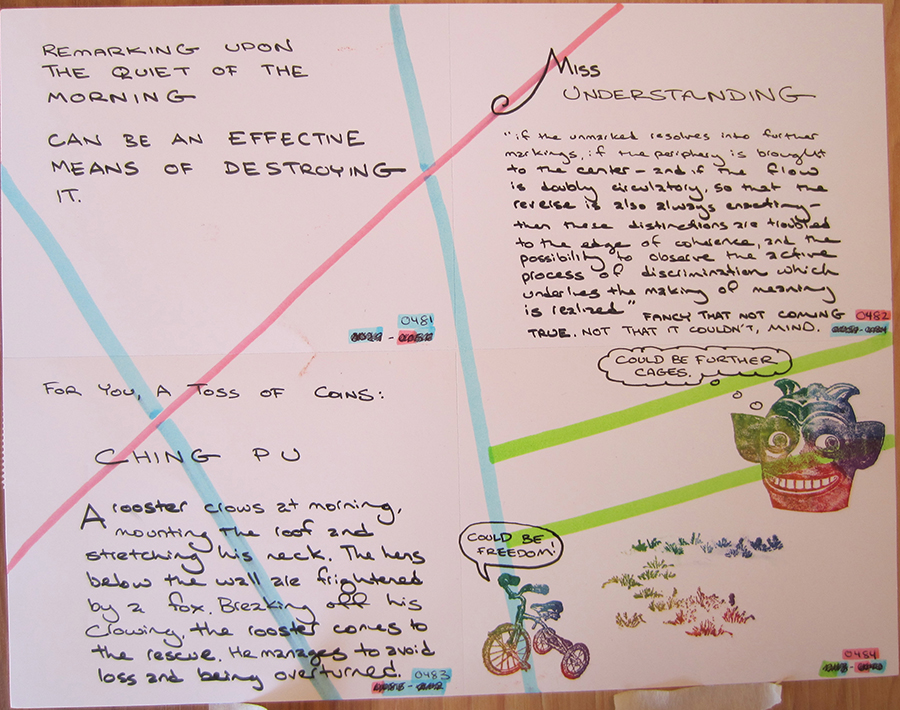 REMARKING UPON
THE QUIET OF THE
MORNING
CAN BE AN EFFECTIVE
MEANS OF DESTROYING
IT.
0481
Miss
UNDERSTANDING
"if the unmarked resolves into further
markings, if the periphery is brought
to the center – and if the flow
is doubly circulatory, so that the
reverse is also always enacting –
then these distinctions are troubled
to the edge of coherence, and the
possibility to observe the active
process of discrimination which
underlies the making of meaning
is realized" FANCY THAT NOT COMING
TRUE. NOT THAT IT COULDN'T, MIND.
0482
FOR YOU, A TOSS OF COINS:
CHING PU
A rooster crows at morning,
mounting the roof and
stretching his neck. The hens
below the wall are frightened
by a fox. Breaking off his
crowing, the rooster comes to
the rescue. He manages to avoid
loss and being overturned.
0483
COULD BE FURTHER
CAGES.
COULD BE
FREEDOM!
0484